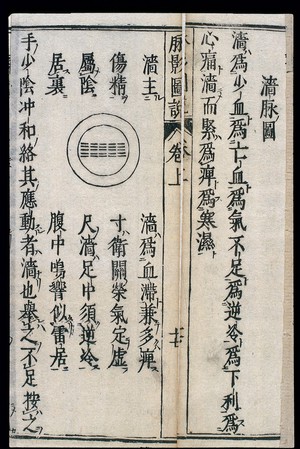 濇脉圖
濇爲少血爲亡血爲氣不足爲逆冷爲下利爲
心痛濇而緊爲痺爲寒濕
脉影圖說 卷上
濇主
傷精
屬陰
居裏
濇爲血滯兼多痺
寸衛關榮氣定虛
尺濇足中須逆冷
腹中鳴響似雷居
手少陰冲和絡其應動者濇也舉之不足按之